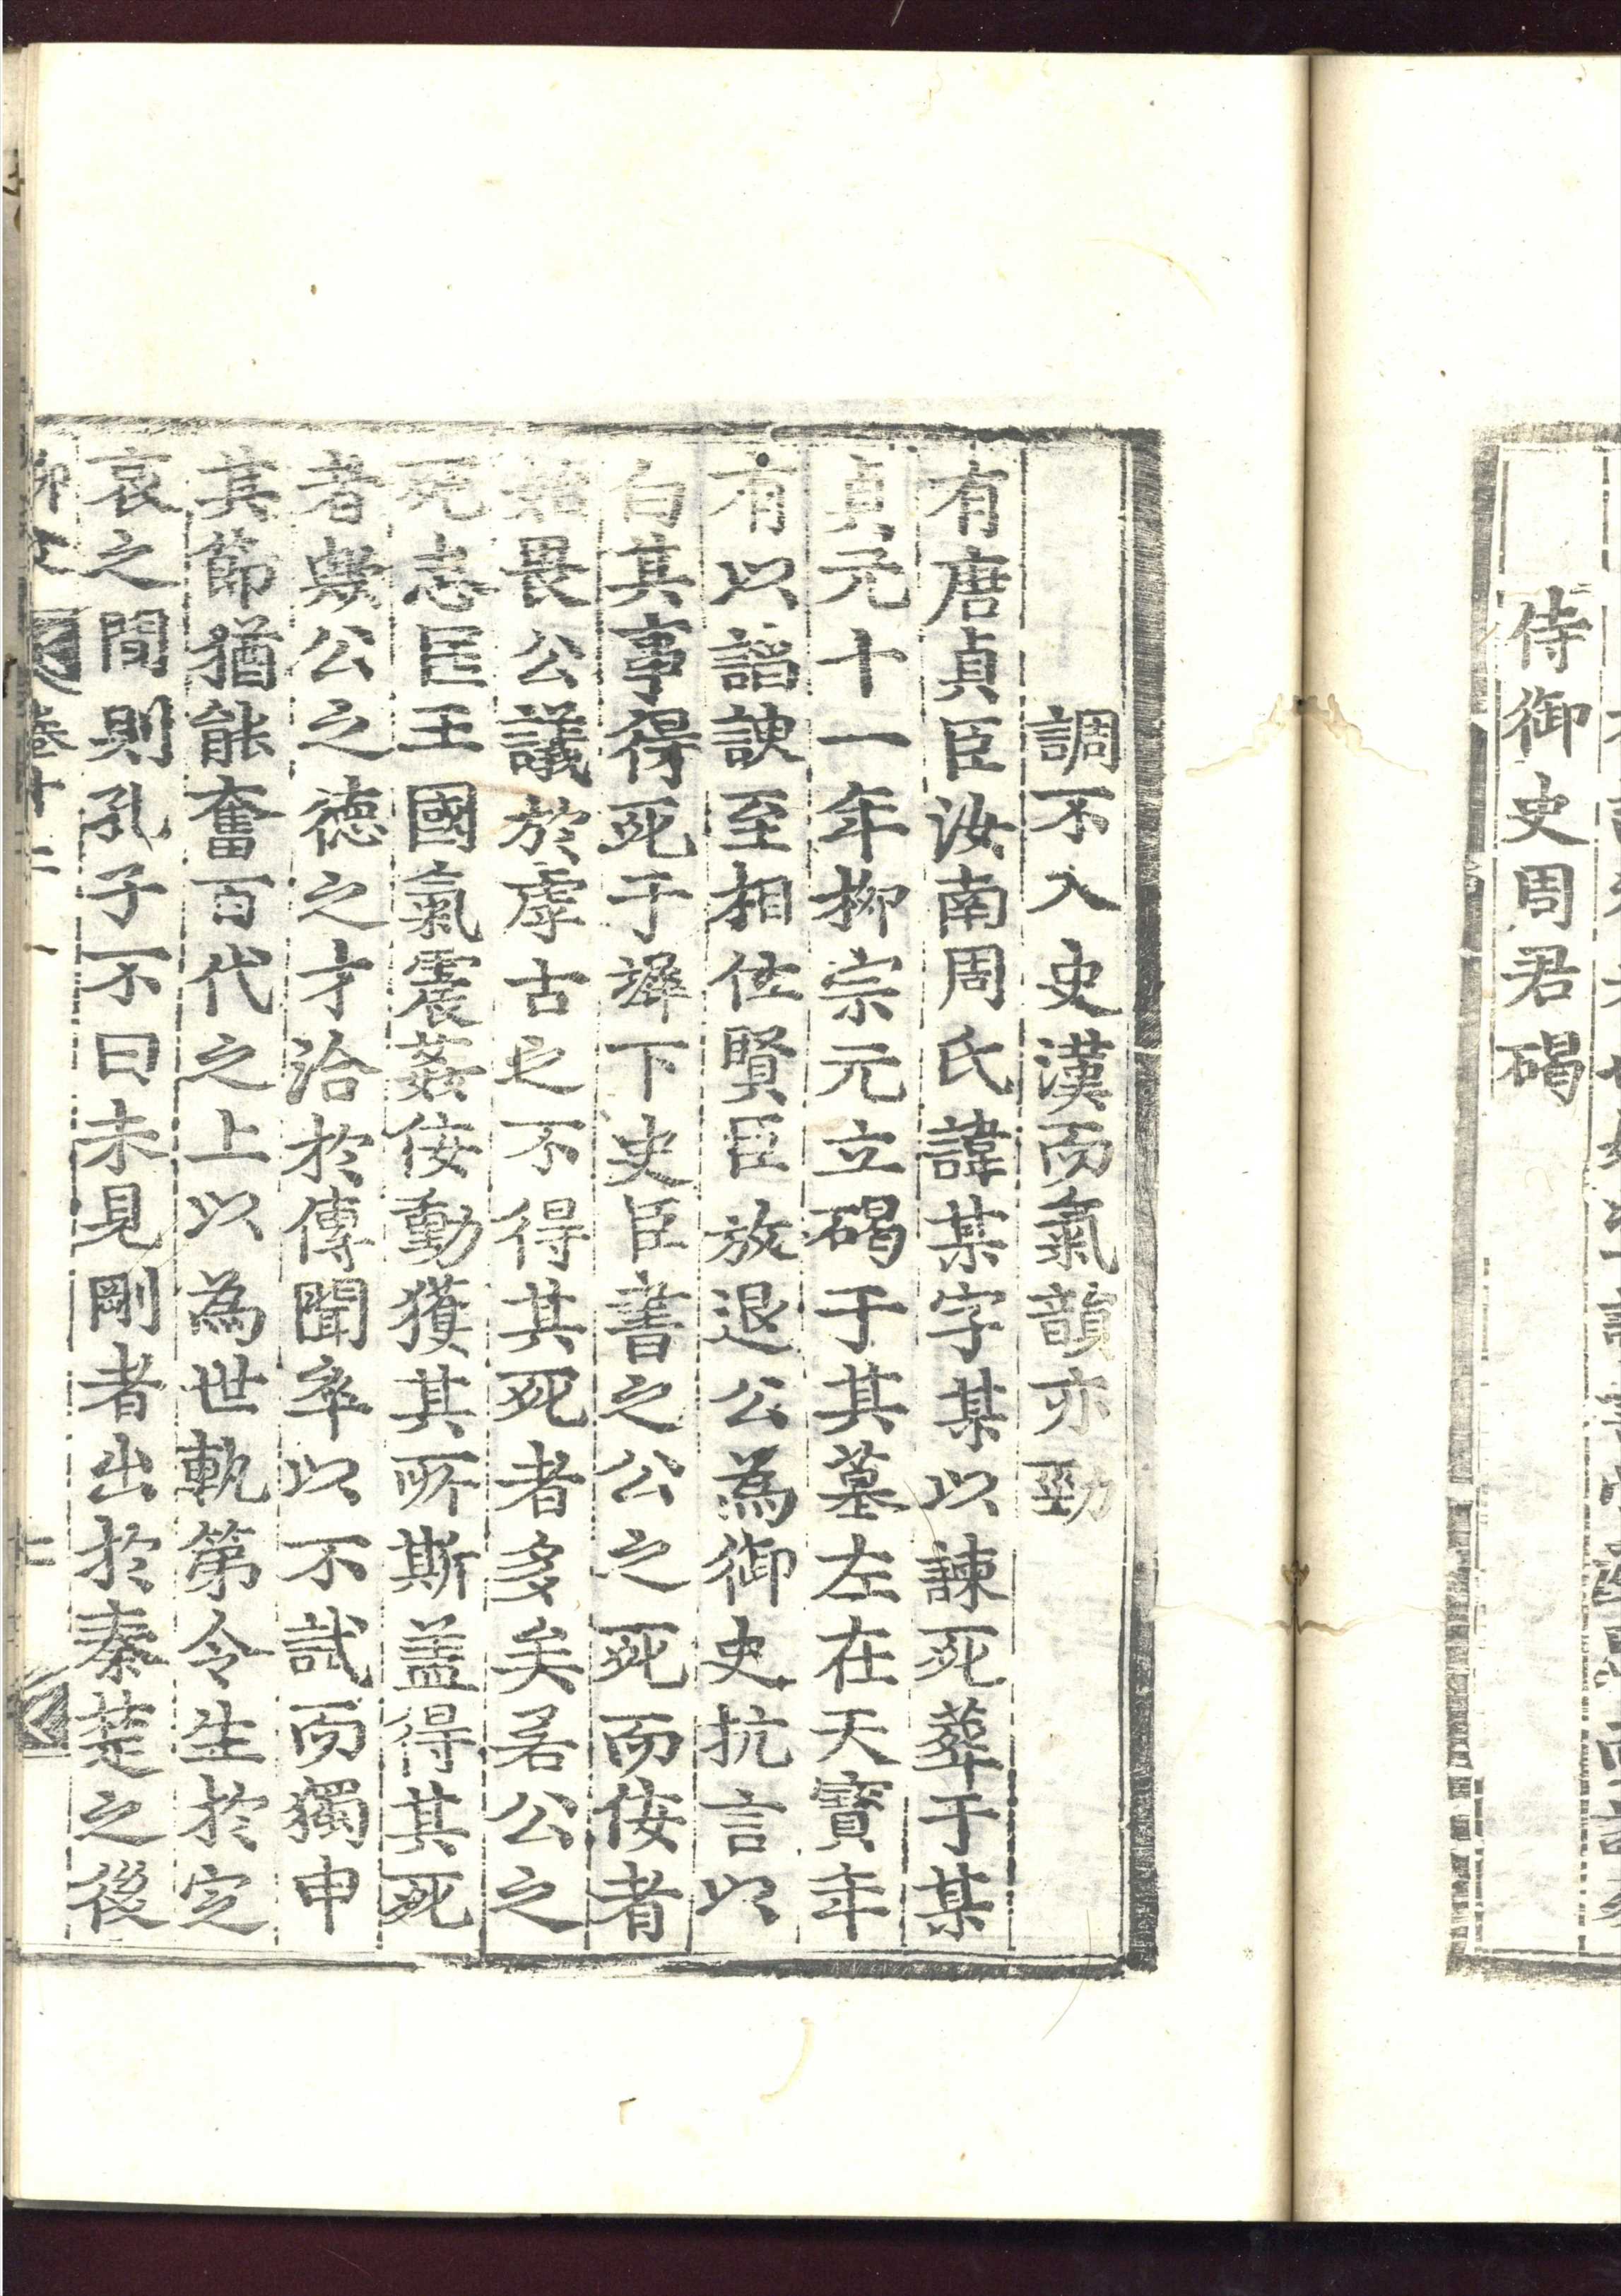 侍御史周君碣
調不入史漢而氣韻亦勁
有唐貞臣汝南周氏諱某字某以諫死葬于某
貞元十一年柳宗元立碣于其墓左在天寶年
有以謟諛至相位賢臣放退公為御史抗言以
白其事得死于墀下史臣書之公之死而佞者
始畏公議於虖古之不得其死者多矣若公之
死志匡王國氣震姦佞動獲其所斯盖得其死
者歟公之德之才洽於傳聞卒以不試而獨申
其節猶能奮百代之上以為世軌第令生於定
哀之間則孔子不曰未見剛者出於秦楚之後
卷十二